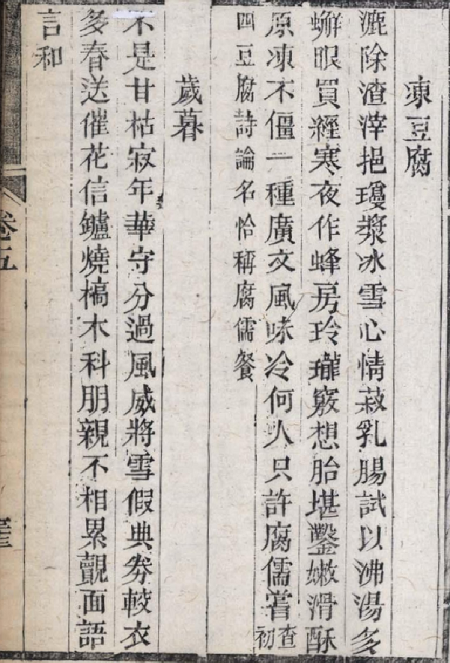 凍豆腐
漉除渣滓挹瓊漿冰雪心情菽乳腸試以沸湯多
蠏眼買經寒夜作蜂房玲瓏竅想胎堪鑿嫩滑酥
原凍不僵一種廣文風味冷何人只許腐儒嘗查初
四豆腐詩論名恰稱腐儒餐
歲暮
不是甘枯寂年華守分過風威將雪假典券較衣
多春送催花信鑪燒槁木科朋親不相累覿面語
言和
卷五